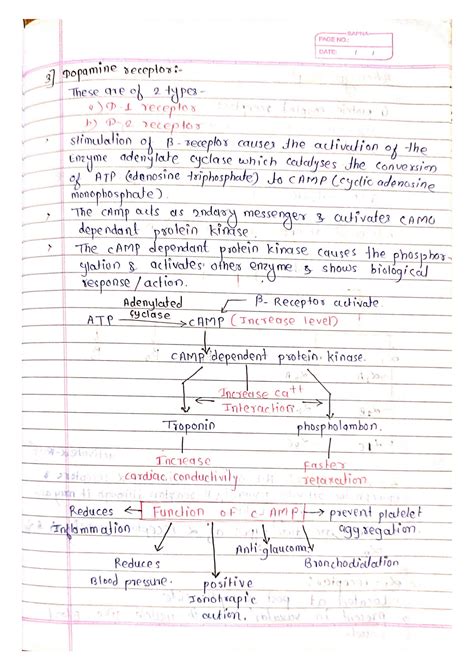 SAPNA
PAGE NO.:
DATE: / /
3] Dopamine receptor:-
These are of 2 types-
a) D-1 receptor
b) D-2 receptor
stimulation of β-receptor causes the activation of the
Enzyme adenylate cyclase which catalyses the conversion
of ATP (adonosine triphosphate) to cAMP (cyclic adenosine
monophosphate).
The cAmp acts as 2ndary messenger & activates cAMO
dependant protein kinase.
The cAMP dependant protein kinase causes the phosphor-
ylation & activates other enzyme & shows biological
response / action.
Adenylated
cyclase
β- Receptor activate.
ATP → cAMP (Increase level)
cAMP dependent protein kinase.
Increase ca++
Interaction
Troponin phospholambon.
Increase
cardiac conductivity
Faster
relaxation.
Reduces
Inflammation
Function OF c-AMP
prevent platelet
aggregation.
Reduces
Blood pressure.
positive
Ionotrapic
aution.
Anti-glaucoma
Bronchodialation